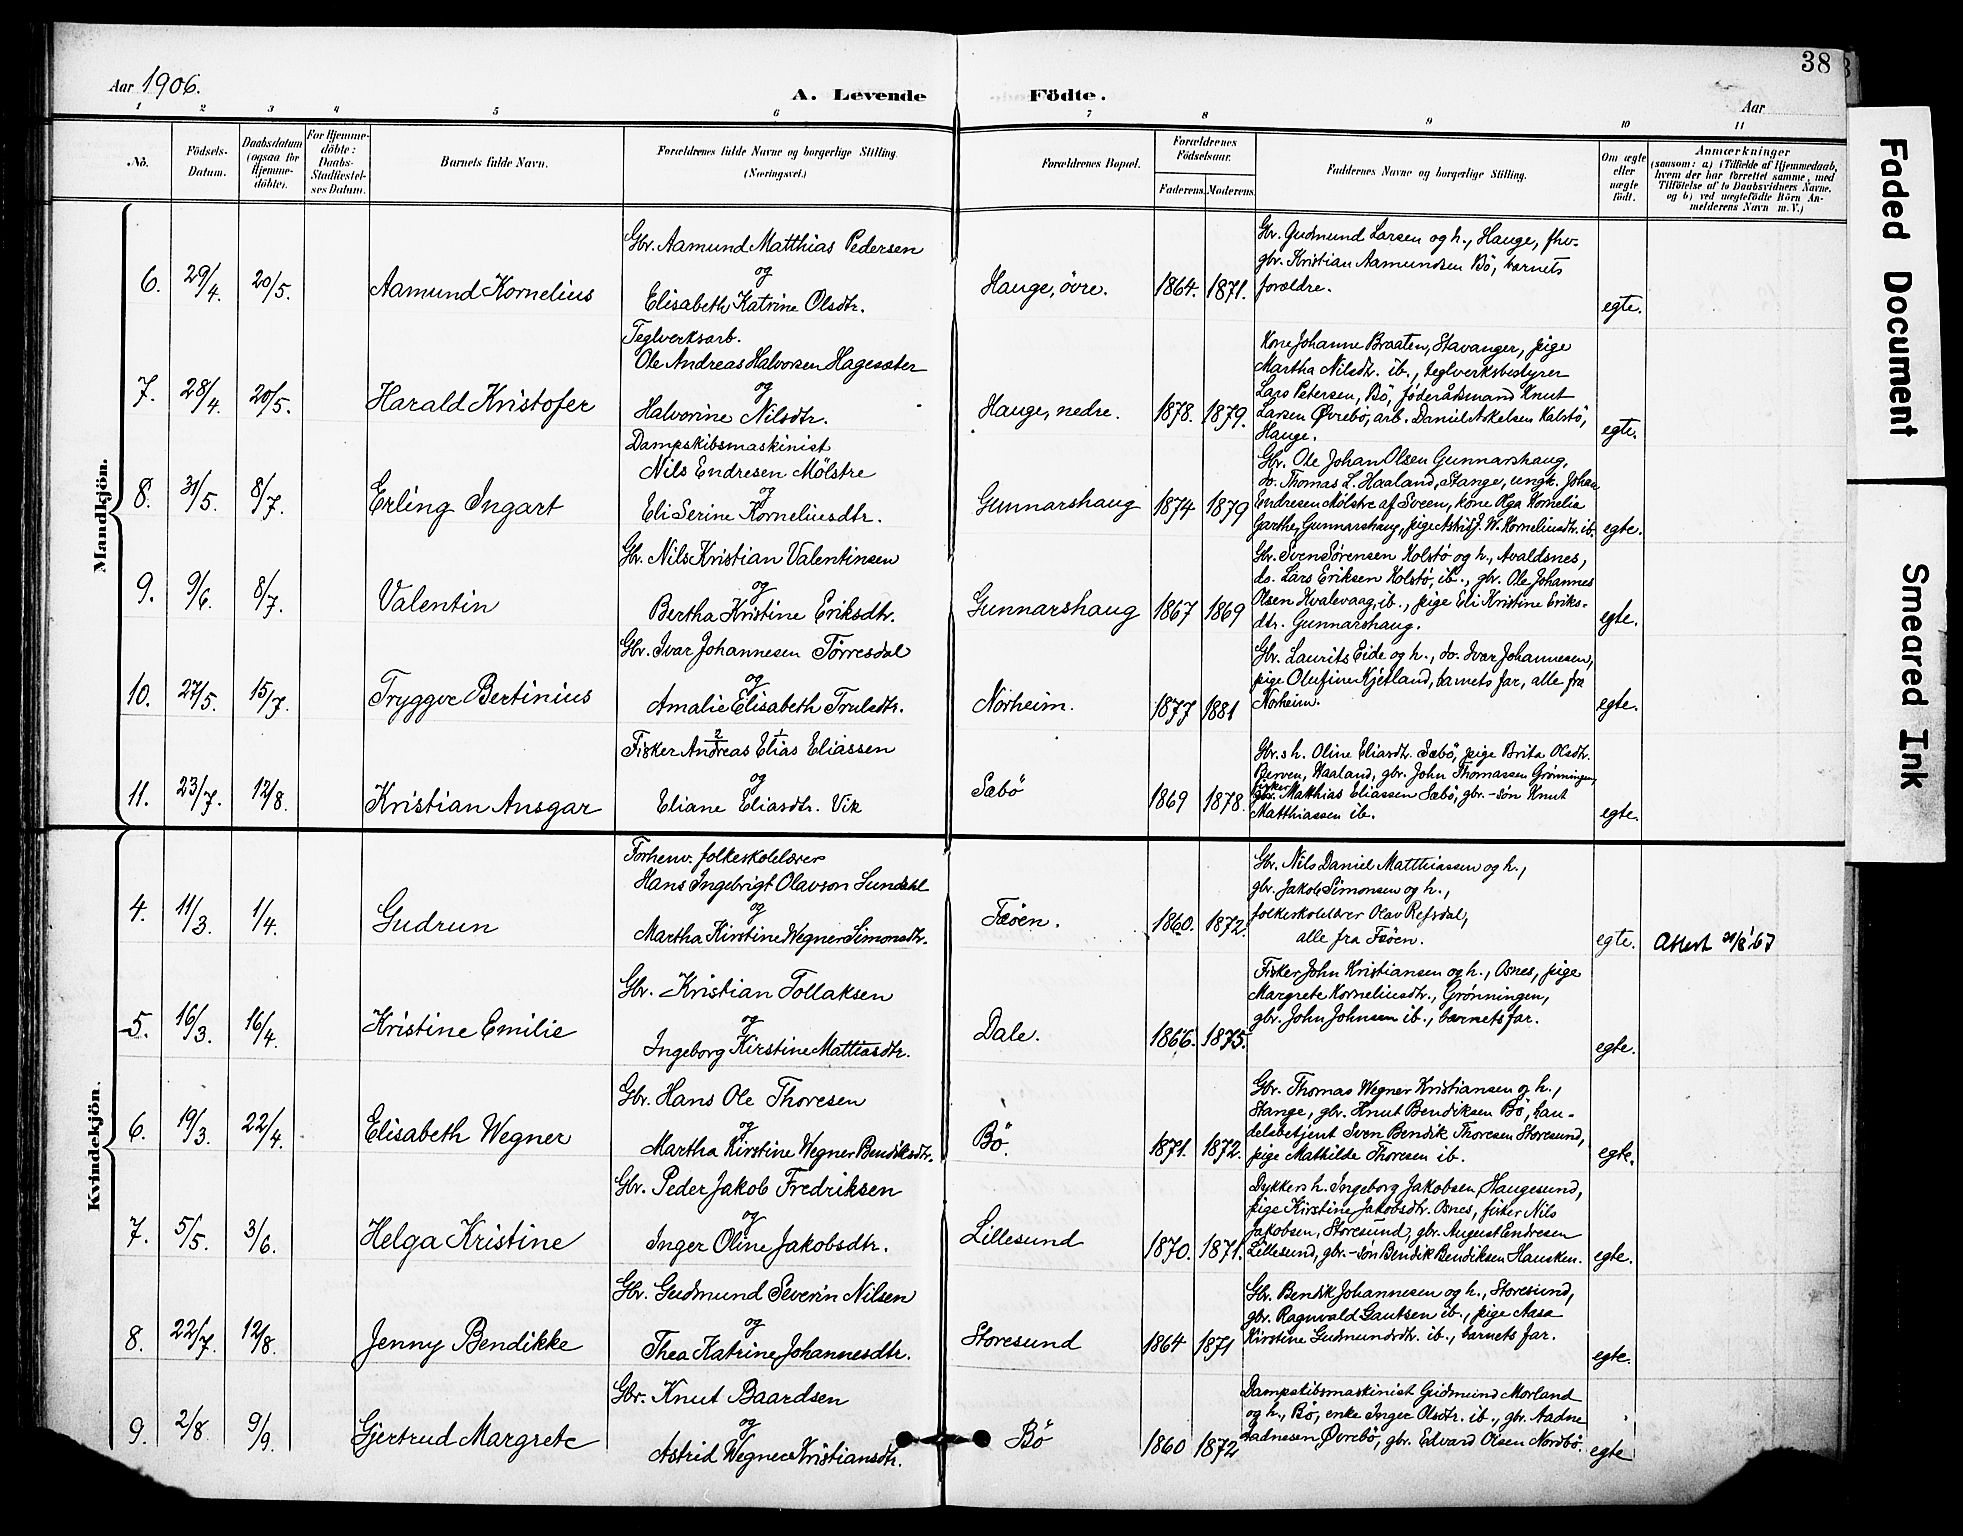 38
Aar 1906.
A. Levende Födte.
Aar
1 2 3 4 5 6 7 8 9 10 11
No.
Födsels-Datum.
Daabsdatum (ogsaa for Hjemme-döbte).
For Hjemme-döbte: Daabs-Stadfæstel-ses Datum.
Barnets fulde Navn.
Forældrenes fulde Navne og borgerlige Stilling. (Næringsvei.)
Forældrenes Bopæl.
Forældrenes Födselsaar.
Faderens. Moderens.
Faddernes Navne og borgerlige Stilling.
Om ægte eller uægte födt.
Anmærkninger
(saasom: a) i Tilfælde af Hjemmedaab,
hvem der har forrettet samme, med
Tilföielse af to Daabsvidners Navne,
og b) ved uægtefödte Börn An-
melderens Navn m. V.)
Mandkjön.
6. 29/4. 20/5. Aamund Kornelius
Gbr. Aamund Matthias Pedersen
og
Elisabeth Katrine Olsdtr.
Hauge, övre. 1864. 1871.
Gbr. Gudmund Larsen og h., Hauge, fhv.
gbr. Kristian Aamundsen Bö, barnets
forældre.
egte.
7. 28/4. 20/5. Harald Kristofer
Teglverksarb.
Ole Andreas Halvorsen Hagesæter
og
Halvorine Nilsdtr.
Hauge, nedre. 1878. 1879.
Kone Johanne Braaten, Stavanger, pige
Martha Nilsdtr. ib., teglverksbestyrer
Lars Petersen, Bö, föderådsmand Knut
Larsen Øvrebö, arb. Daniel Askelsen Kalstö,
Hauge.
egte.
8. 31/5. 8/7. Erling Ingart
Dampskibsmaskinist
Nils Endresen Mölstre
og
Eli Serine Korneliusdtr.
Gunnarshaug 1874 1879
Gbr. Ole Johan Olsen Gunnarshaug,
do. Thomas L. Haaland, Stange, ungk. Johan
Endresen Mölstre af Sveen, kone Olga Kornelia
Garthe, Gunnarshaug, pige Astrid J. W. Korneliusdtr. ib.
egte.
9. 9/6. 8/7. Valentin
Gbr. Nils Kristian Valentinsen
og
Bertha Kristine Eriksdtr.
Gunnarshaug 1867 1869
Gbr. Sven Sörensen Kolstö og h., Avaldsnes,
do. Lars Eriksen Kolstö, ib., gbr. Ole Johannes
Olsen Kvalevaag, ib., pige Eli Kristine Eriks-
dtr. Gunnarshaug.
egte.
10. 27/5. 15/7. Tryggve Bertinius
Gbr. Ivar Johannesen Törresdal
og
Amalie Elisabeth Trulsdtr.
Norheim. 1877 1881
Gbr. Laurits Eide og h., do. Ivar Johannesen,
pige Olufine Kjetland, barnets far, alle fra
Norheim.
egte.
11. 23/7. 12/8. Kristian Ansgar
2 1
Fisker Andreas Elias Eliassen
og
Eliane Eliasdtr. Vik
Sæbö 1869 1878.
Gbr.s h. Oline Eliasdtr. Sæbö, pige Brita Olsdtr.
Berven, Haaland, gbr. John Thomassen Grönningen,
fisker Matthias Eliassen Sæbö, gbr.-sön Knut
Matthiassen ib.
egte.
Kvindekjön.
4. 11/3. 1/4. Gudrun
Forhenv. folkeskolelærer
Hans Ingebrigt Olavson
og
Martha Kirstine Wegner Simonsdtr.
Fæöen. 1860. 1872.
Gbr. Nils Daniel Matthiassen og h.,
gbr. Jakob Simonsen og h.,
folkeskolelærer Olav Refsdal,
alle fra Fæöen.
egte. Attest 21/8 '67
5. 16/3. 16/4. Kristine Emilie
Gbr. Kristian Tollaksen
og
Ingeborg Kirstine Mattiasdtr.
Dale. 1866. 1875.
Fisker John Kristiansen og h., Osnes, pige
Margrete Korneliusdtr., Grönningen,
gbr. John Johnsen ib., barnets far.
egte.
6. 19/3. 22/4. Elisabeth Wegner
Gbr. Hans Ole Thoresen
og
Martha Kirstine Wegner Bendiksdtr.
Bö. 1871. 1872.
Gbr. Thomas Wegner Kristiansen og h.,
Stange, gbr. Knut Bendiksen Bö, han-
delsbetjent Sven Bendik Thoresen Storesund,
pige Mathilde Thoresen ib.
egte.
7. 5/5. 3/6. Helga Kristine
Gbr. Peder Jakob Fredriksen
og
Inger Oline Jakobsdtr.
Lillesund 1870. 1871.
Dykkers h. Ingeborg Jakobsen, Haugesund,
pige Kirstine Jakobsdtr. Osnes, fisker Nils
Jakobsen, Storesund, gbr. August Endresen
Lillesund, gbr.-sön Bendik Bendiksen Hausken.
egte.
8. 22/7. 12/8. Jenny Bendikke
Gbr. Gudmund Severin Nilsen
og
Thea Katrine Johannesdtr.
Storesund 1864 1871
Gbr. Bendik Johannesen og h., Storesund,
gbr. Ragnvald Gautsen ib., pige Aasa
Kirstine Gudmundsdtr. ib., barnets far.
egte.
9. 2/8. 9/9. Gjertrud Margrete
Gbr. Knut Baardsen
og
Astrid Wegner Kristiansdtr.
Bö 1860 1872
Dampskibsmaskinist Gudmund Morland
og h., Bö, enke Inger Olsdtr. ib., gbr. Aadne
Aadnesen Øvrebö, gbr. Edvard Olsen Nordbö
egte
Faded Document
Smeared Ink